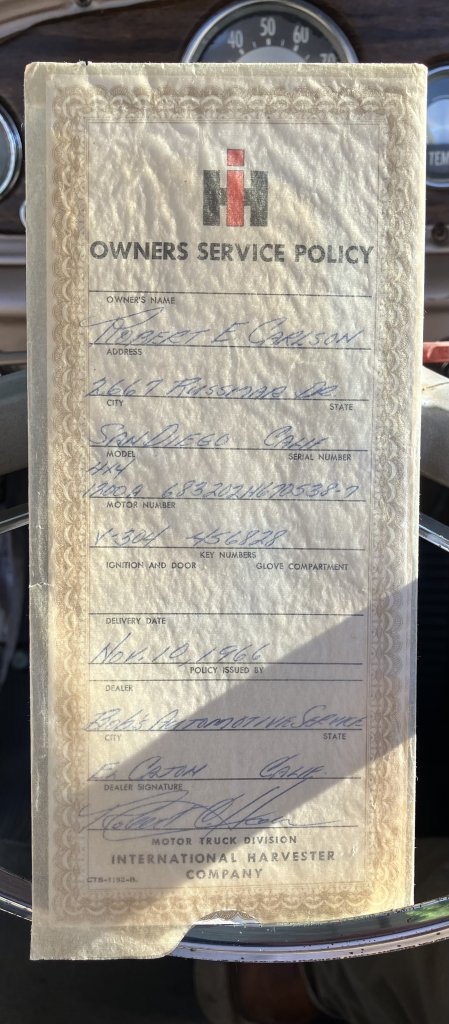 40 50 60 70
TEM
IH
OWNERS SERVICE POLICY
OWNER'S NAME
Robert E Carlson
ADDRESS
2667 Russmar Dr
CITY STATE
San Diego Calif
MODEL SERIAL NUMBER
4x4
1200A 683202H670538-7
MOTOR NUMBER
V-304 456828
KEY NUMBERS
IGNITION AND DOOR GLOVE COMPARTMENT
DELIVERY DATE
Nov. 10, 1966
POLICY ISSUED BY
DEALER
Bob's Automotive Service
CITY STATE
El Cajon Calif.
DEALER SIGNATURE
Robert
MOTOR TRUCK DIVISION
INTERNATIONAL HARVESTER
COMPANY